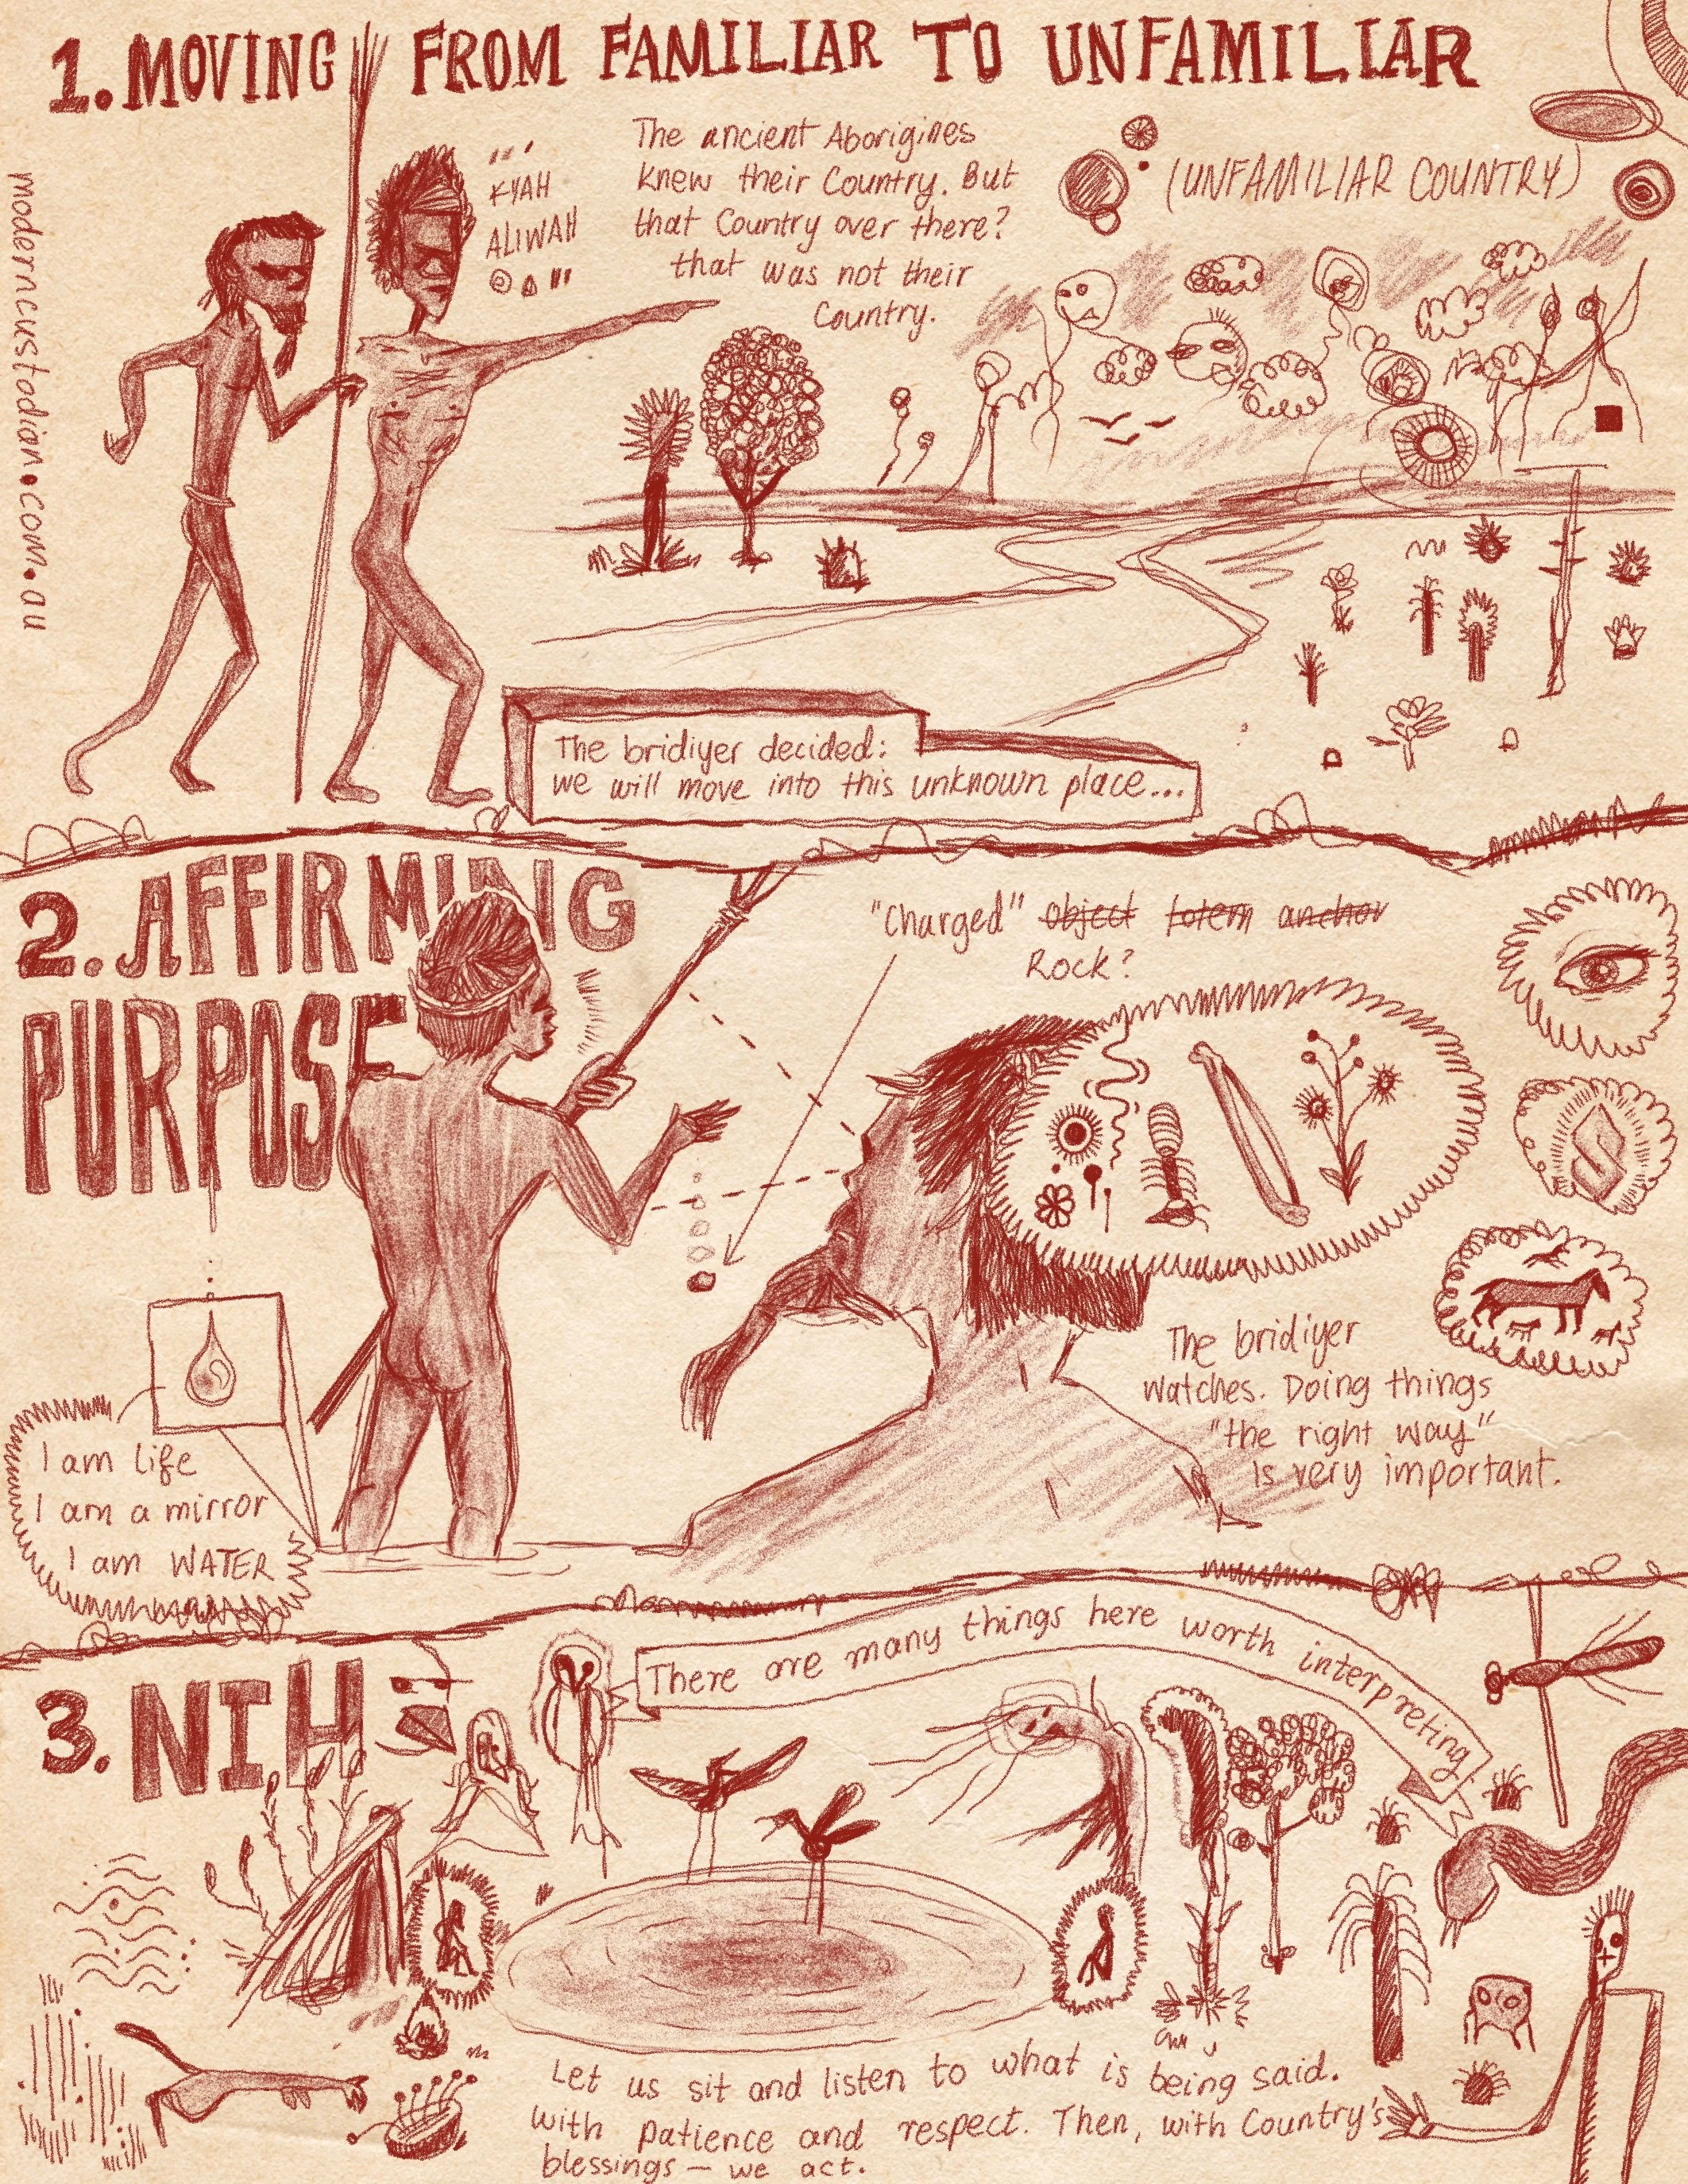 1. MOVING FROM FAMILIAR TO UNFAMILIAR
moderncustodian.com.au
KYAH
ALIWAH
The ancient Aborigines
knew their Country. But
that Country over there?
that was not their
Country.
(UNFAMILIAR COUNTRY)
The bridiyer decided:
we will move into this unknown place...
2. AFFIRMING
PURPOSE
"Charged" object totem anchor
Rock?
The bridiyer
watches. Doing things
"the right way"
is very important.
I am life
I am a mirror
I am WATER
3. NIH
There are many things here worth interpreting
Let us sit and listen to what is being said.
With patience and respect. Then, with Country's
blessings — we act.